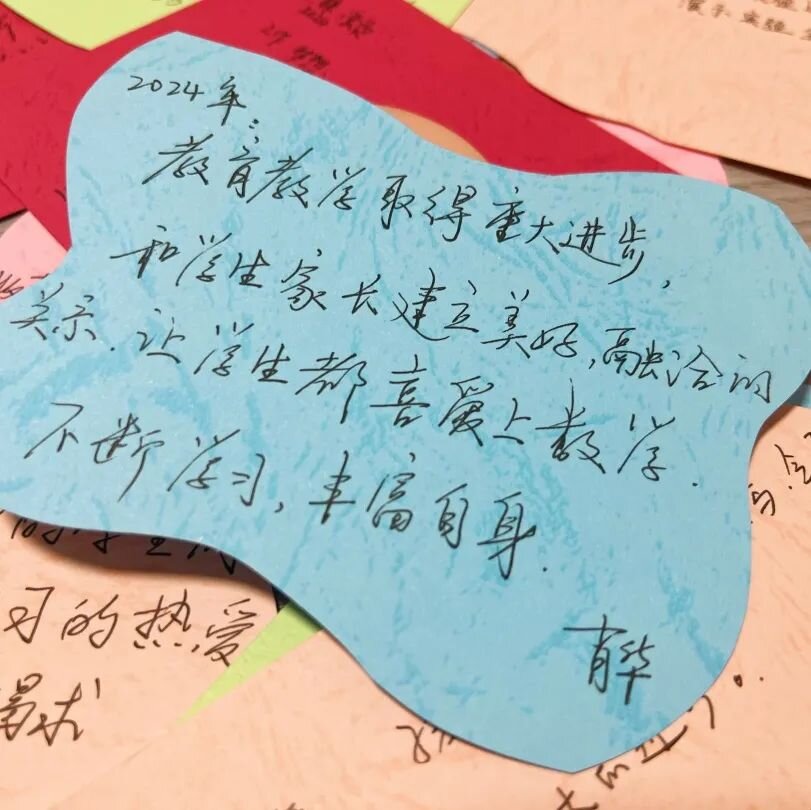 2024年:
教育教学取得重大进步,
和学生家长建立美好,融洽的
关系.让学生都喜爱上数学.
不断学习,丰富自身.
育华
习的热爱
渴求